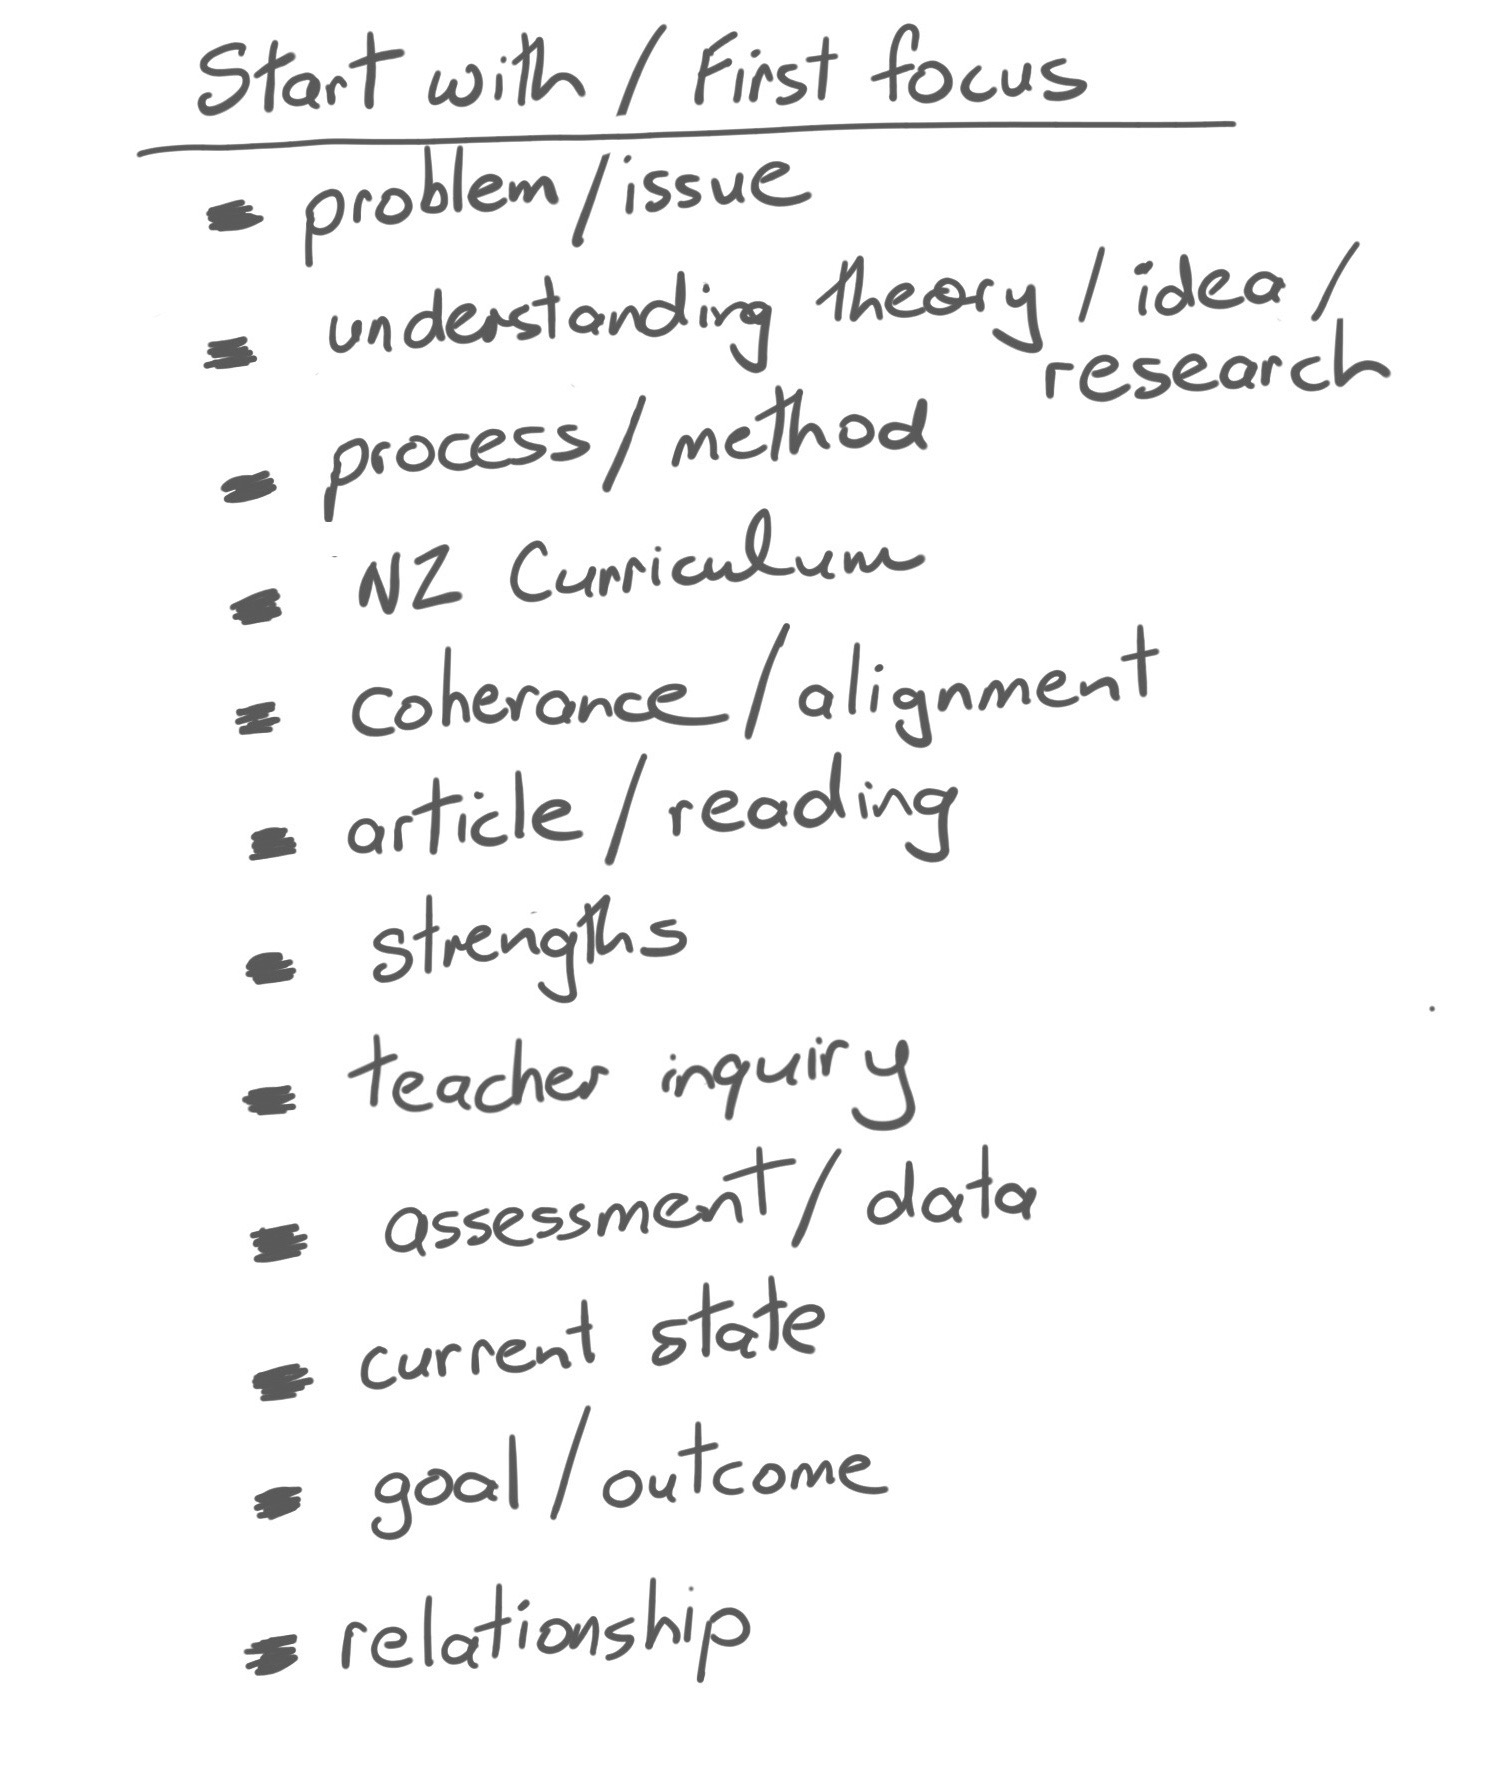 Start with / First focus
- problem/issue
- understanding theory / idea /
research
- process/ method
- NZ Curriculum
- coherance / alignment
- article / reading
- strengths
- teacher inquiry
- assessment/ data
- current state
- goal / outcome
- relationship